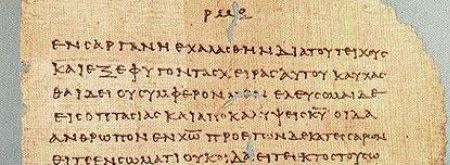 ΡΜΕ
ΕΝϹΑΡΓΑΝΗΕΧΑΛΑϹΘΗΝΔΙΑΤΟΥΤΕΙΧΟΥϹ
ΚΑΙΕΞΕΦΥΓΟΝΤΑϹΧΕΙΡΑϹΑΥΤΟΥΚΑΥΧΑϹ
ΘΑΙΔΕΙΟΥϹΥΜΦΕΡΟΝΜΕΝΕΛΕΥϹΟΜΑΙΔΕ
ΕΙϹΟΠΤΑϹΙΑϹΚΑΙΑΠΟΚΑΛΥΨΕΙϹΚ̅Υ̅ΟΙΔΑ
ΑΝΘΡΩΠΟΝΕΝΧ̅Ω̅ΠΡΟΕΤΩΝΔΕΚΑΤΕϹϹΑΡΩΝ
ΕΙΤΕΕΝϹΩΜΑΤΙΟΥΚΟΙΔΑΕΙΤΕΕΚΤΟϹΤΟΥϹΩ